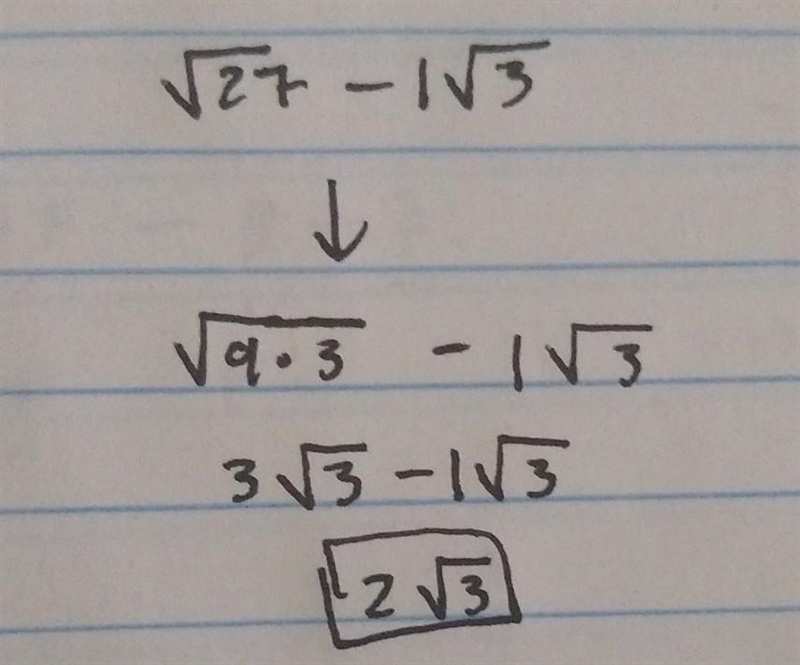 √27 - 1√3
↓
√9·3 - 1√3
3√3 - 1√3
2√3